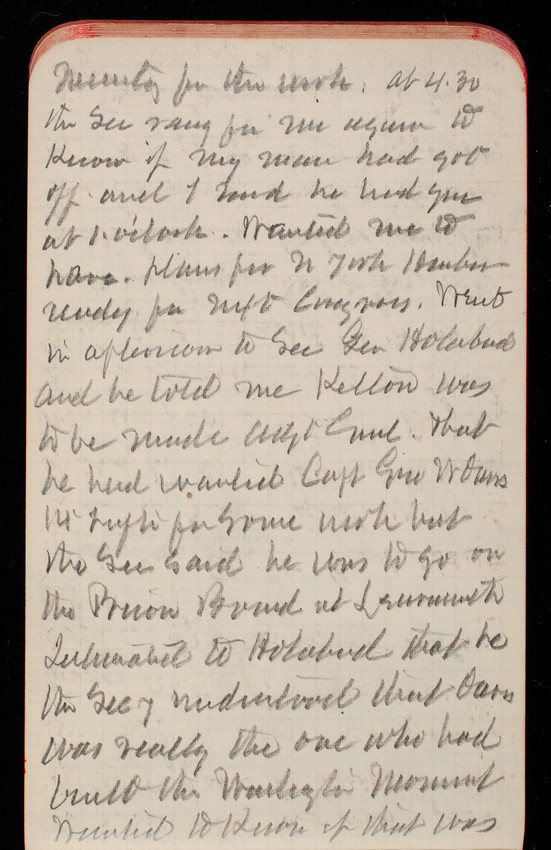 for the work. at 4.30
the Sec rang for me again to
Know if my man had got
off and I said he had gone
at 1 o'clock. Wanted me to
have plans for N York Harbor
ready for next Congress. Went
in afternoon to see Gen Holabird
and he told me Kelton was
to be made Adjt Genl. That
he had wanted Capt Geo W Davis
for some work but
the Sec said he was to go on
the Prison Board at Leavenworth
Intimated to Holabird that he
the Secy understood that Davis
was really the one who had
built the Washington Monument
Wanted to Know if that was